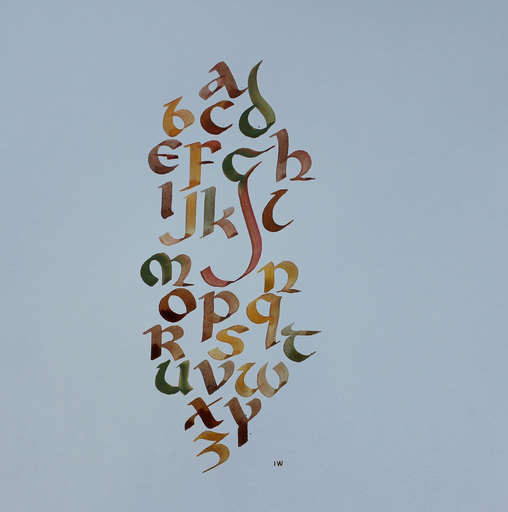 a
b c d
e f g h
i j k l
m n
o p q
r s t
u v w
x y
z
IW